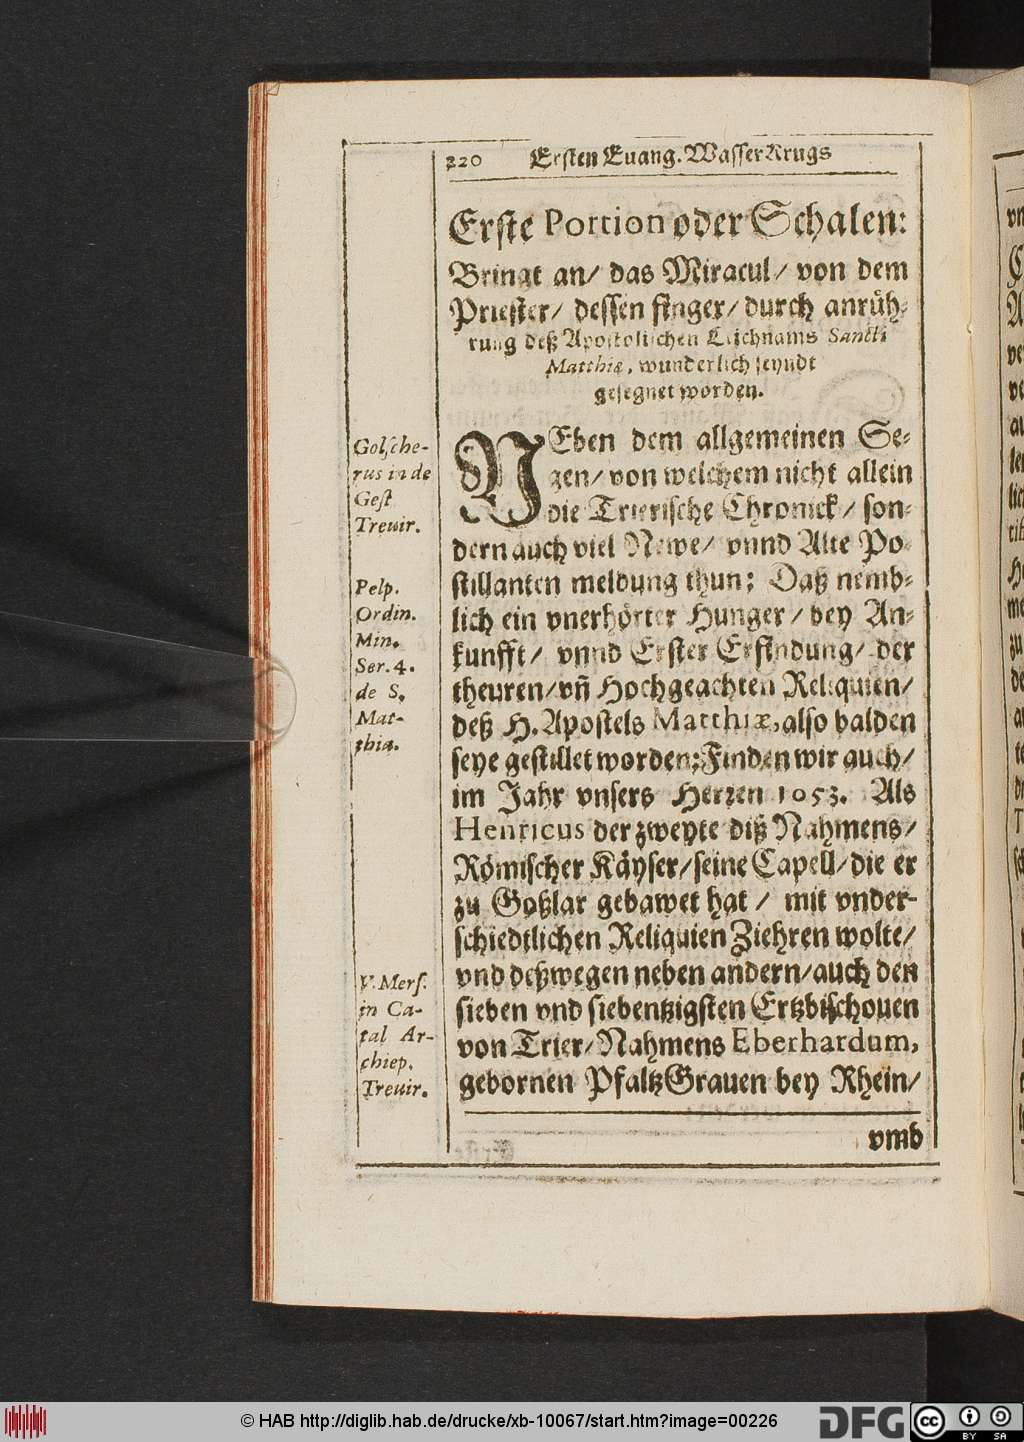 220 Ersten Euang. WasserKrugs
Erste Portion oder Schalen:
Bringt an/ das Miracul/ von dem
Priester/ dessen finger/ durch anrüh-
rung deß Apostolischen Leichnams Sancti
Matthiæ, wunderlich seyndt
gesegnet worden.
NEben dem allgemeinen Se-
gen/ von welchem nicht allein
die Trierische Chronick/ son-
dern auch viel Newe/ vnnd Alte Po-
stillanten meldung thun; Daß nemb-
lich ein vnerhörter Hunger/ bey An-
kunfft/ vnnd Erster Erfindung/ der
theuren/ vn̄ Hochgeachten Reliquien/
deß H. Apostels Matthiæ, also balden
seye gestillet worden; Finden wir auch/
im Jahr vnsers Herren 1053. Als
Henricus der zweyte diß Nahmens/
Römischer Käyser/ seine Capell/ die er
zu Goßlar gebawet hat/ mit vnder-
schiedtlichen Reliquien Ziehren wolte/
vnd deßwegen neben andern/ auch den
sieben vnd siebentzigsten Ertzbischouen
von Trier/ Nahmens Eberhardum,
gebornen PfaltzGrauen bey Rhein/
vmb
Golsche-
rus in de
Gest
Treuir.
Pelp.
Ordin.
Min.
Ser. 4.
de S.
Mat-
thia.
V. Mers.
in Ca-
tal Ar-
chiep.
Treuir.
© HAB http://diglib.hab.de/drucke/xb-10067/start.htm?image=00226
DFG
cc BY SA